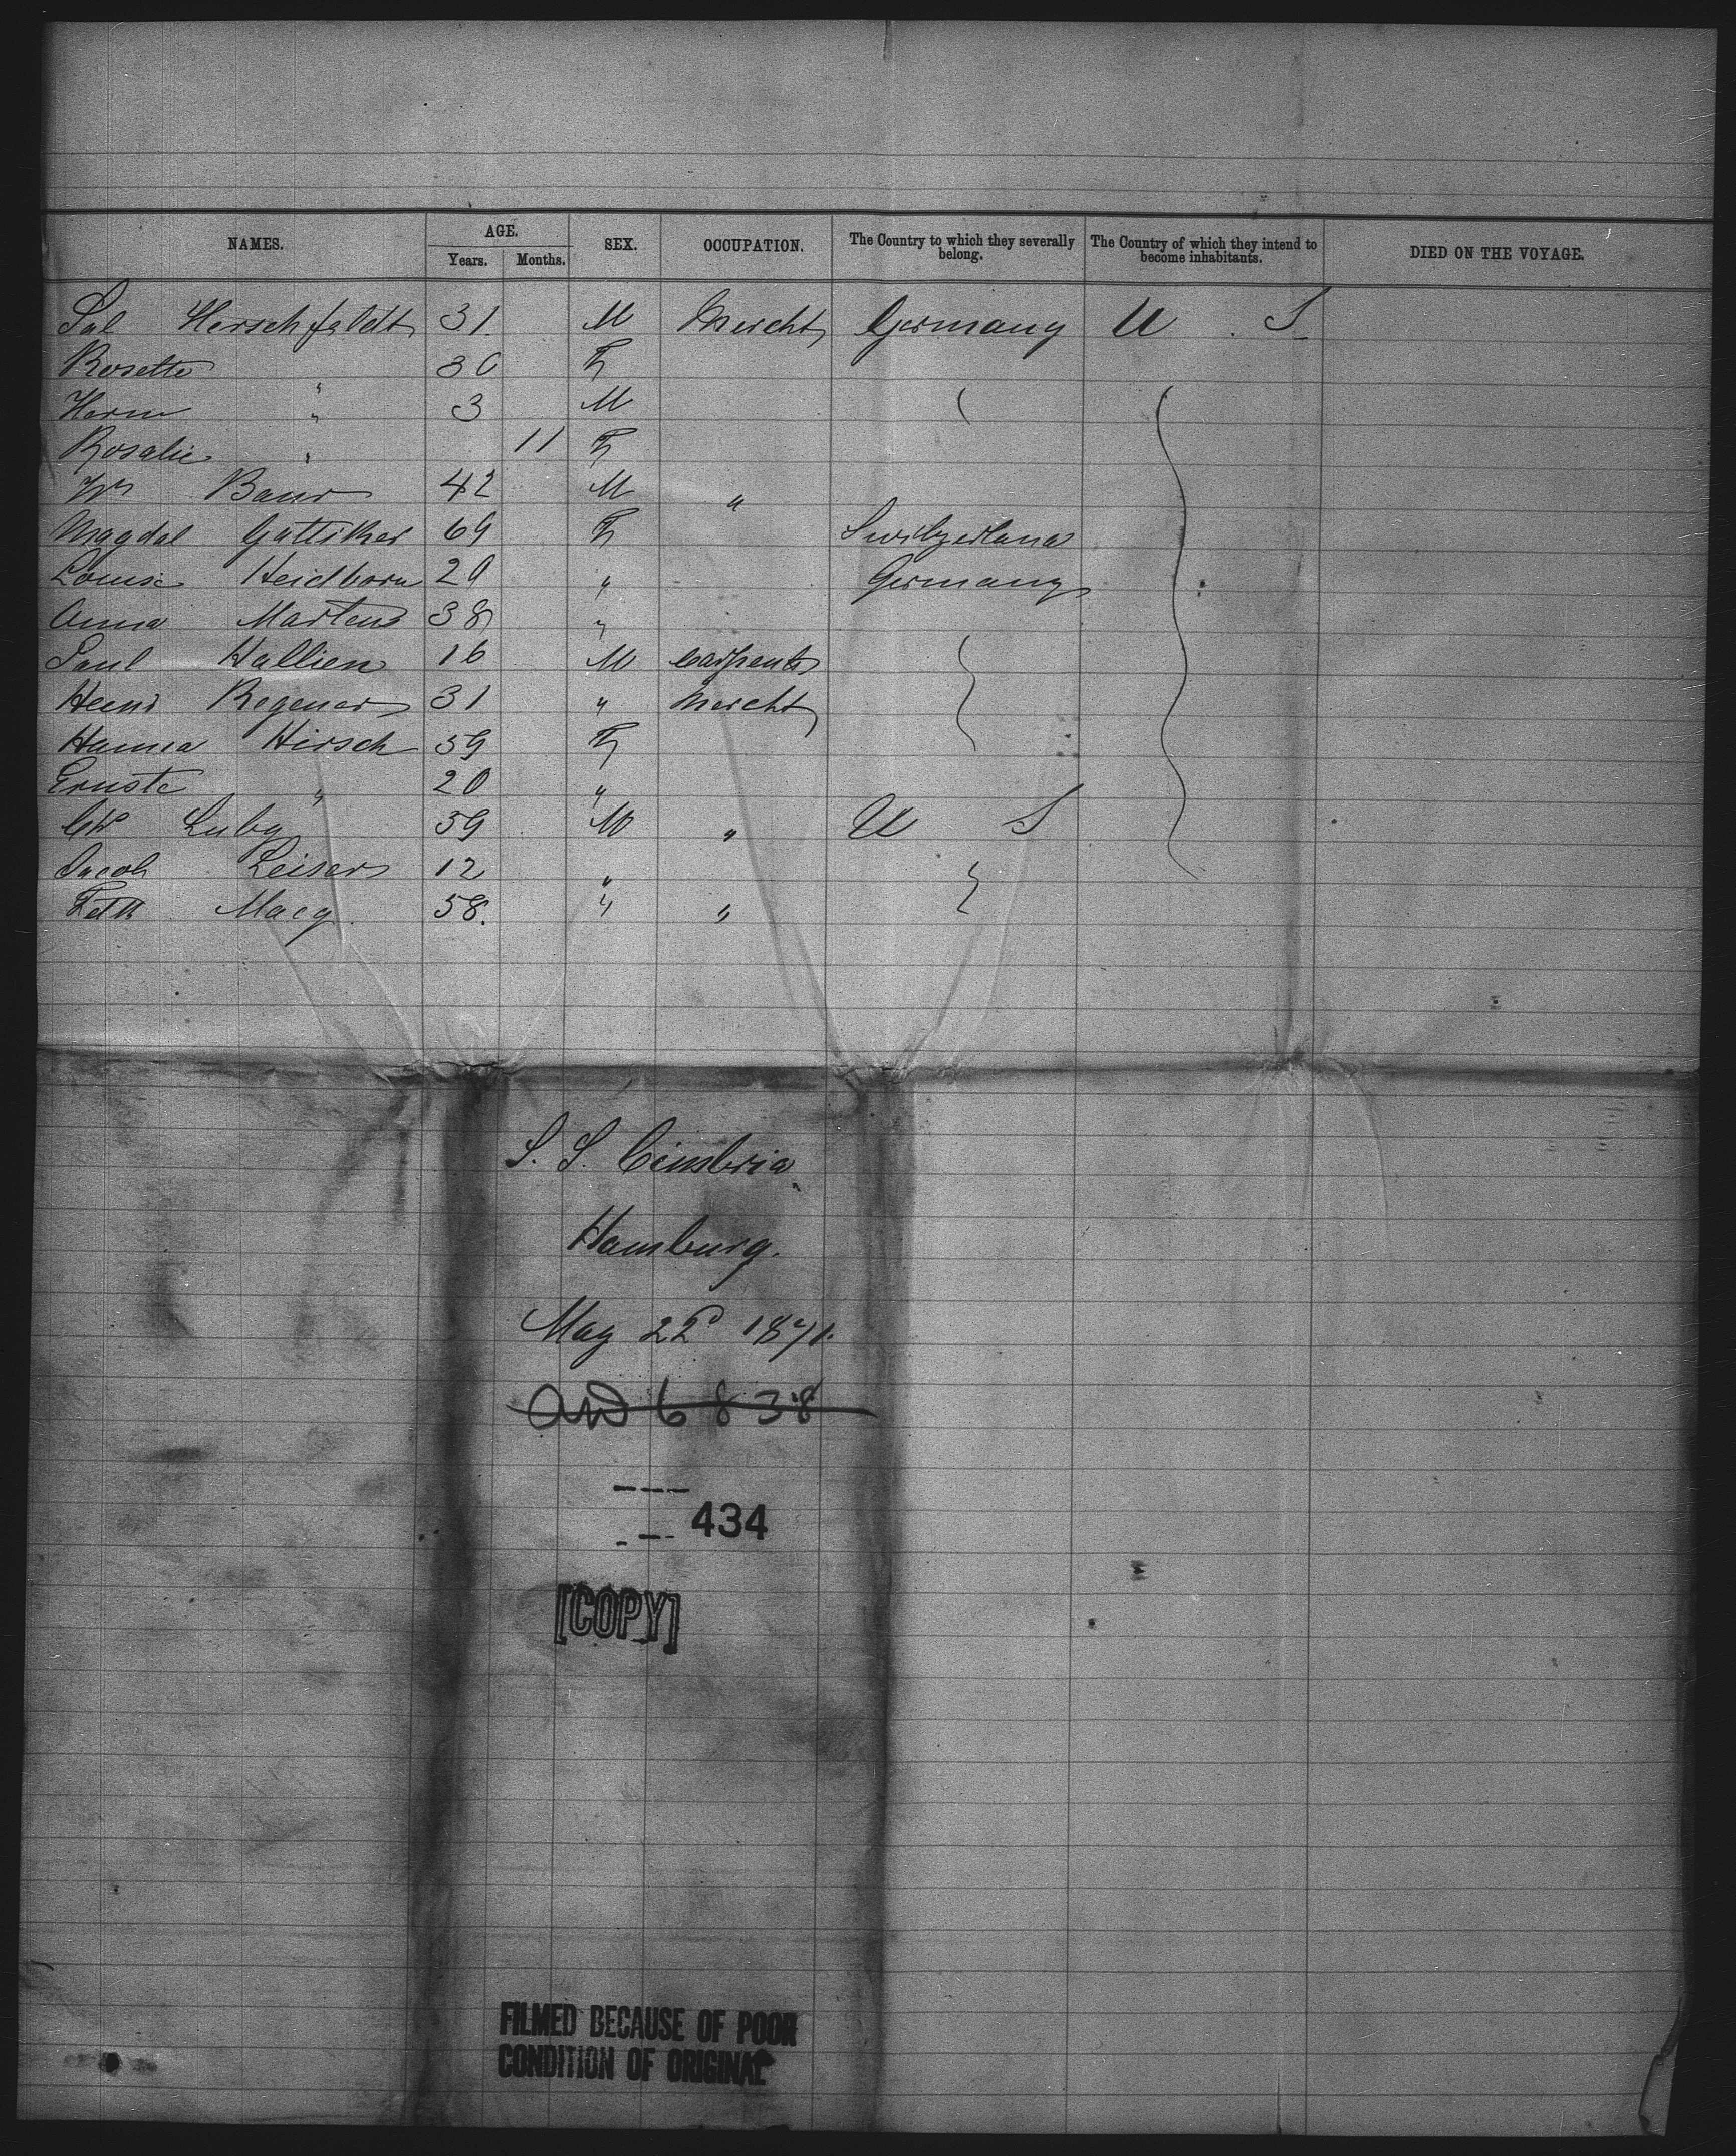 NAMES. AGE. SEX. OCCUPATION. The Country to which they severally belong. The Country of which they intend to become inhabitants. DIED ON THE VOYAGE.
Years. Months.
Sal Herschfeldt 31 M Mercht Germany U. S.
Rosette " 30 F
Herm " 3 M
Rosalie " 11 F
Wm Baur 42 M "
Magdal Gattiker 69 F Switzerland
Louise Heidborn 29 " Germany
Anna Martens 38 "
Paul Hallien 16 M Carpentr
Heinr Regener 31 " Mercht
Hanna Hirsch 59 F
Ernste " 20 "
Luby 59 M " U S
Jacob Leiser 12 "
58. " "
S. S. Cimbria
Hamburg.
May 22d 1871.
6838
434
[COPY]
FILMED BECAUSE OF POOR
CONDITION OF ORIGINAL